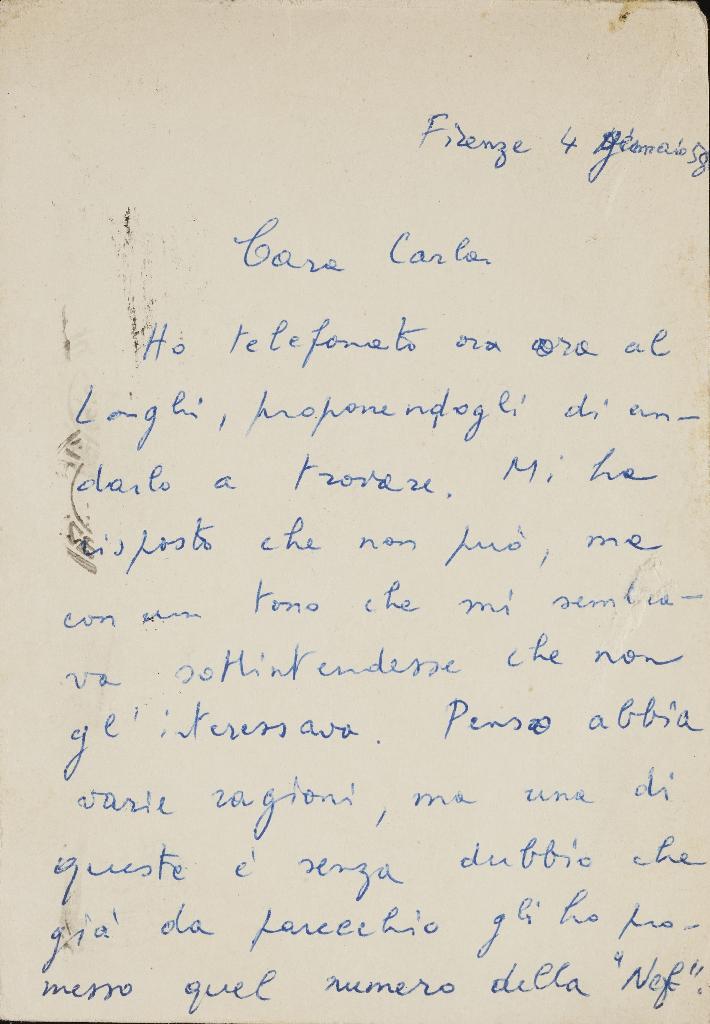 Firenze 4 Gennaio 58
Cara Carla
Ho telefonato ora ora al
Longhi, proponendogli di an-
darlo a trovare. Mi ha
risposto che non può, ma
con un tono che mi sembra-
va sottintendesse che non
gl'interessava. Penso abbia
varie ragioni, ma una di
queste è senza dubbio che
già da parecchio gli ho pro-
messo quel numero della "Nef".